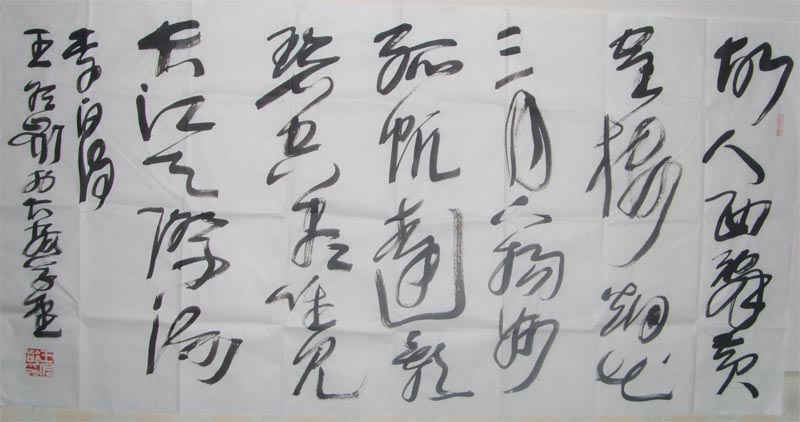 故人西辞黄
鹤楼烟花
三月下扬州
孤帆遠影
碧空尽唯见
长江天際流
李白诗
王 书